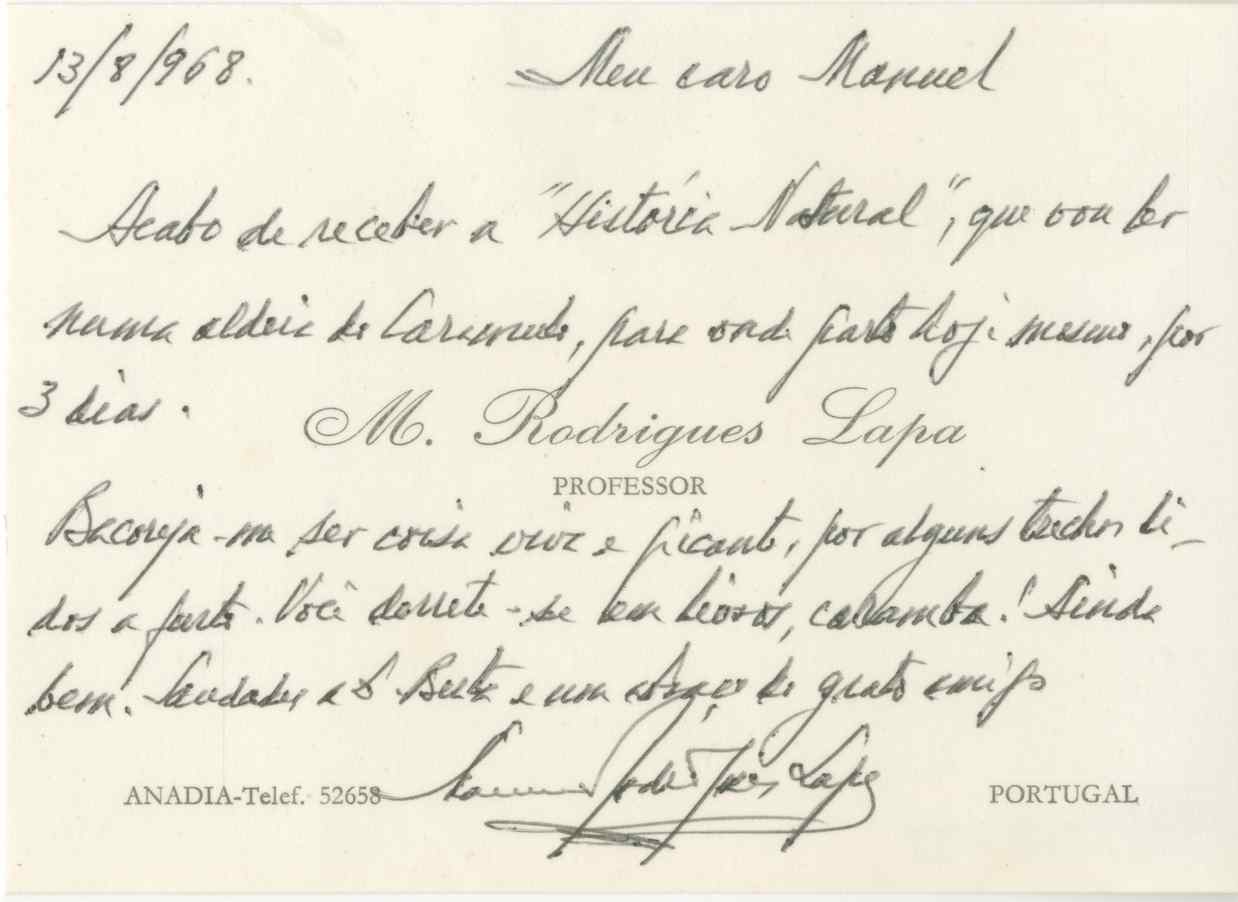 13/8/968.
Meu caro Manuel
Acabo de receber a "História Natural", que vou ler
numa aldeia do Caramulo, para onde parto hoje mesmo, por
3 dias.
M. Rodrigues Lapa
PROFESSOR
Bacoreja-me ser coisa viva e picante, por alguns trechos li-
dos a furto. Você derrete-se em livros, caramba! Ainda
bem. Saudades a D. Berta e um abraço do grato amigo
Manuel Rodrigues Lapa
ANADIA-Telef. 52658
PORTUGAL